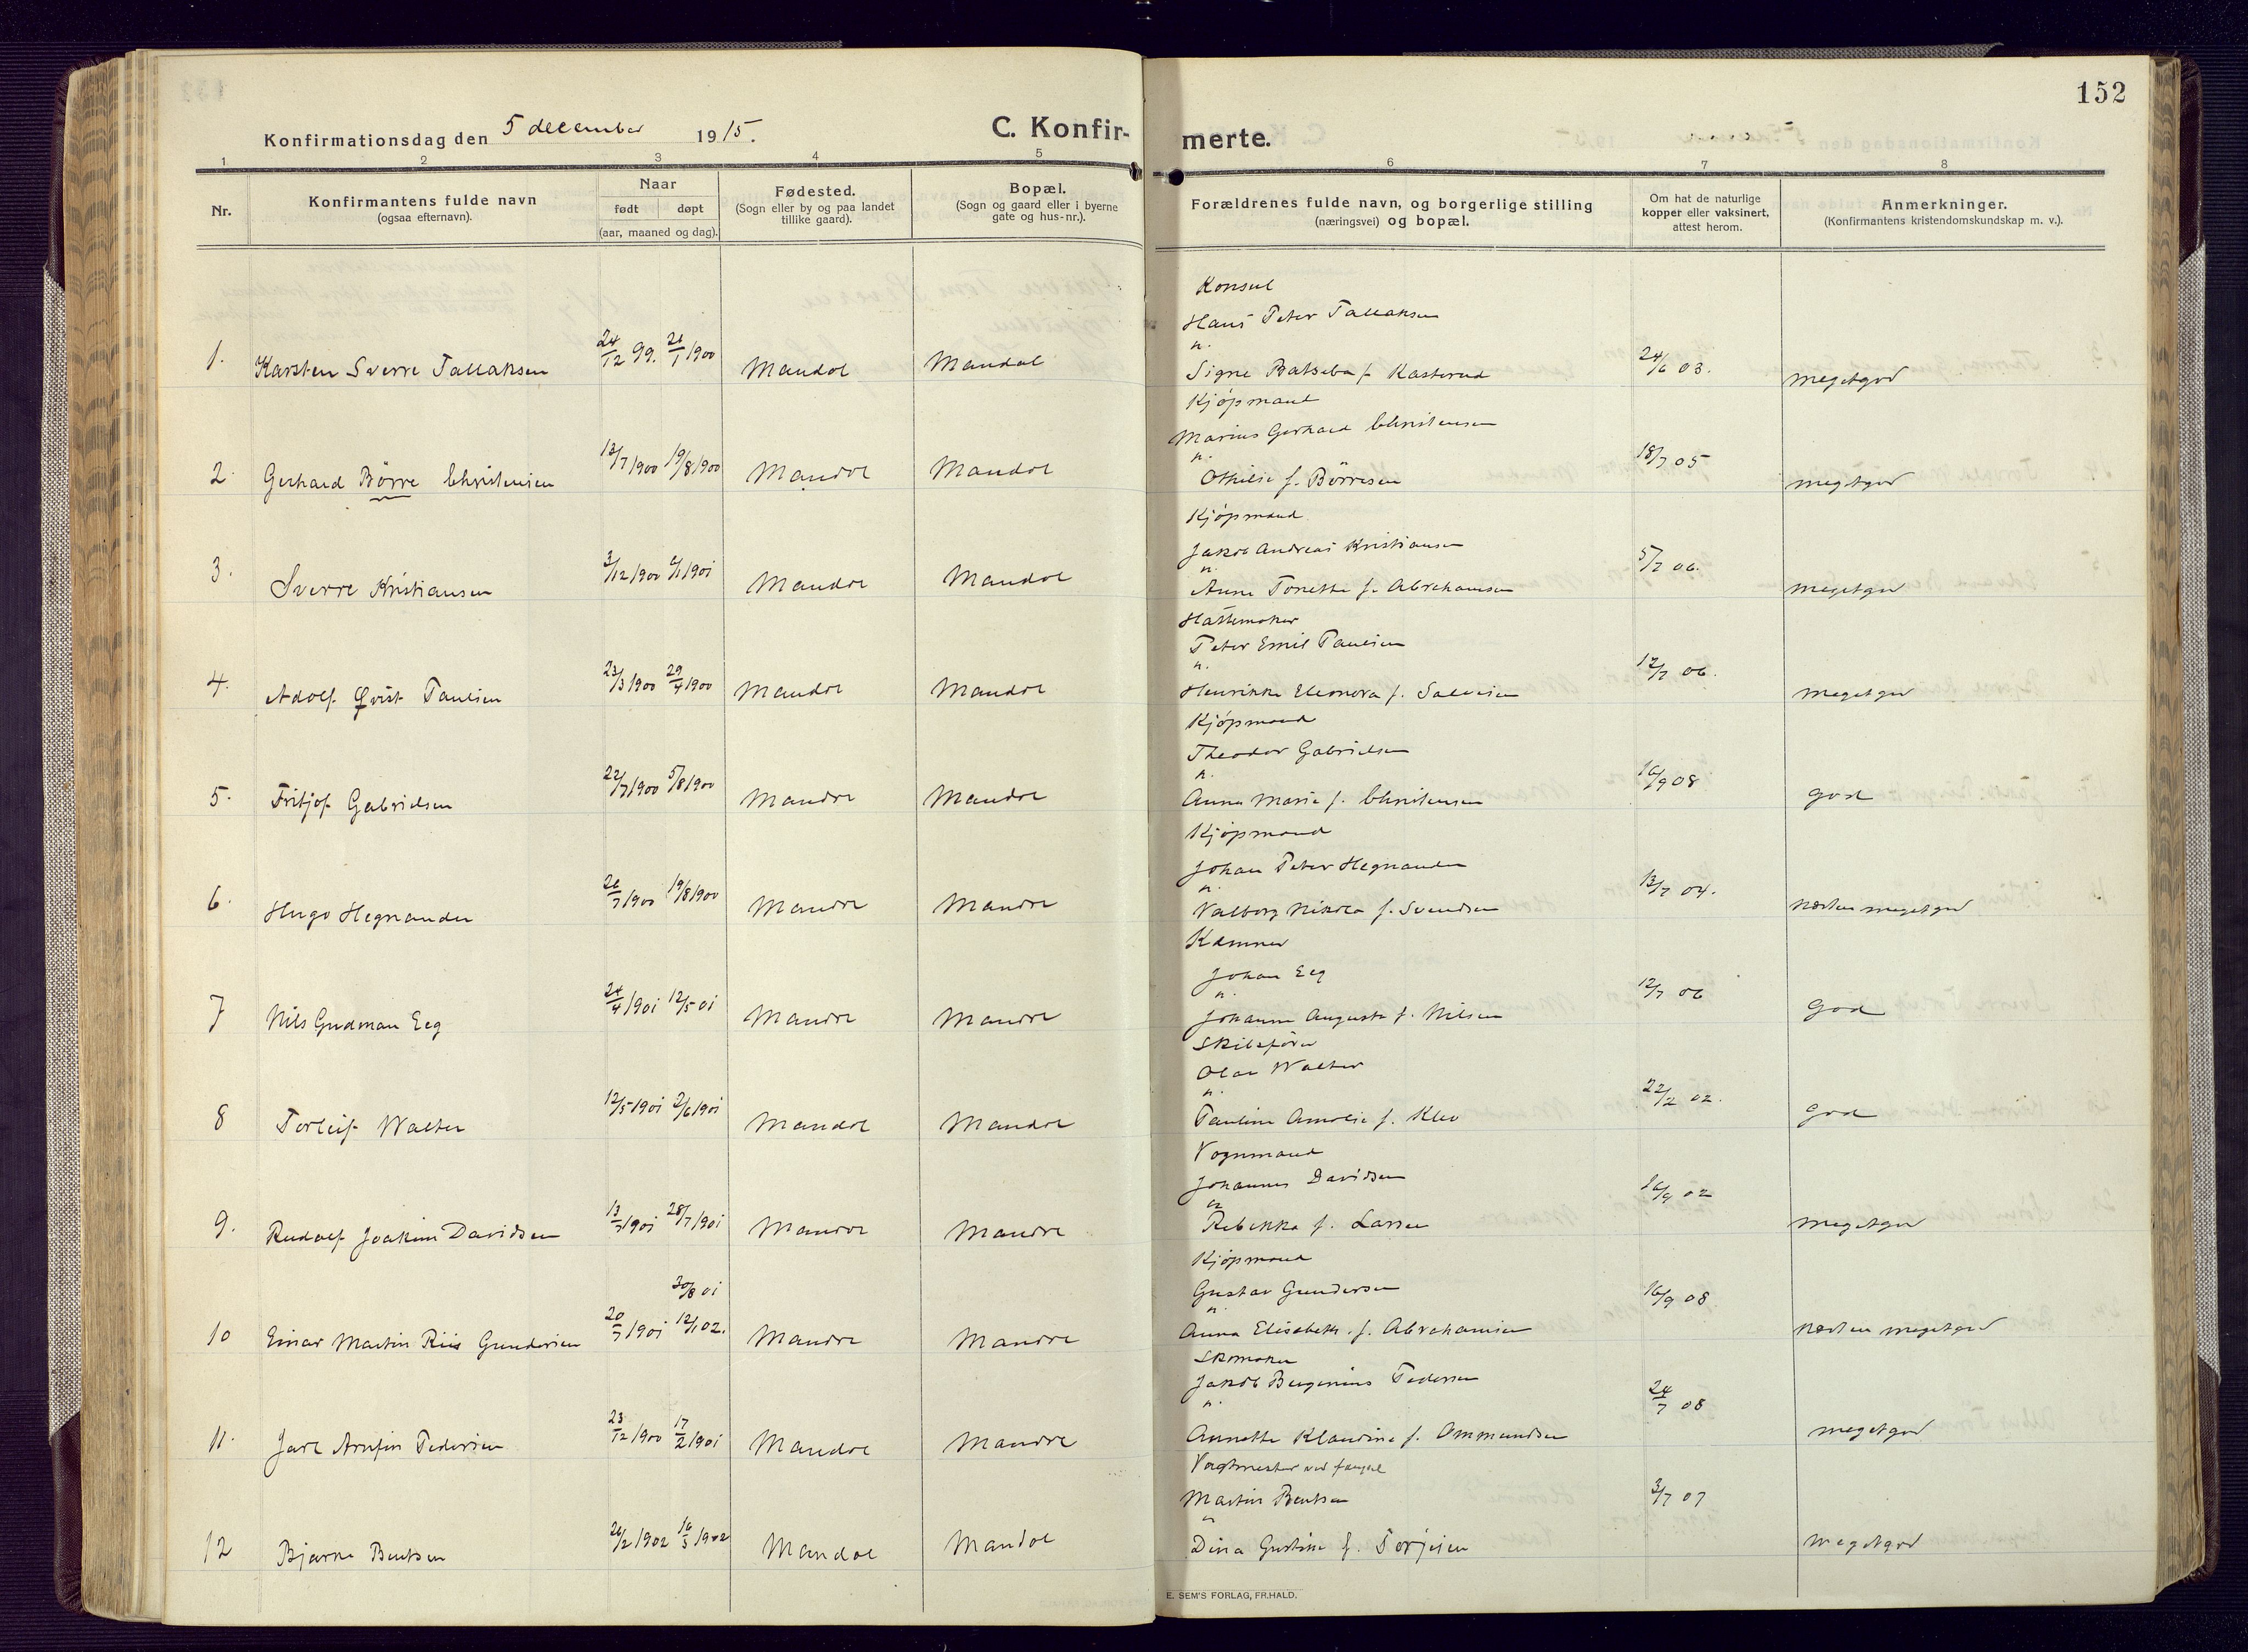 152
Konfirmationsdag den 5 december 1915.
C. Konfir-
merte.
1 2 3 4 5 6 7 8
Nr.
Konfirmantens fulde navn
(ogsaa efternavn).
Naar
født døpt
(aar, maaned og dag).
Fødested.
(Sogn eller by og paa landet
tillike gaard).
Bopæl.
(Sogn og gaard eller i byerne
gate og hus-nr.).
Forældrenes fulde navn, og borgerlige stilling
(næringsvei) og bopæl.
Om hat de naturlige
kopper eller vaksinert,
attest herom.
Anmerkninger.
(Konfirmantens kristendomskundskap m. v.).
Konsul
Hans Peter Tallaksen
n.
1. Karsten Sverre Tallaksen 24/12 99. 21/1 1900 Mandal Mandal Signe Batseba f. Kasterud 24/6 03. megetgod
Kjøpmand
Marius Gerhard Christensen
n.
2. Gerhard Börre Christensen 13/7 1900 19/8 1900 Mandal Mandal Othilie f. Börresen 18/7 05 megetgod
Kjøpmand
Jakob Andreas Kristiansen
n.
3. Sverre Kristiansen 3/12 1900 6/1 1901 Mandal Mandal Anne Tonette f. Abrahamsen 5/7 06. megetgod
Hattemaker
Peter Emil Paulsen
n.
4. Adolf Qvist Paulsen 23/3 1900 29/4 1900 Mandal Mandal Henrikke Eleonora f. Salvesen 12/7 06. megetgod
Kjøpmand
Theodor Gabrielsen
n.
5. Fritjof Gabrielsen 22/7 1900 5/8 1900 Mandal Mandal Anna Marie f. Christensen 16/9 08 god
Kjøpmand
Johan Peter Hegnander
n.
6. Hugo Hegnander 26/7 1900 19/8 1900 Mandal Mandal Valborg Nikolea f. Svendsen 13/7 04. næsten megetgod
Kæmner
Johan Eeg
n.
7 Nils Gudman Eeg 24/4 1901 12/5 01 Mandal Mandal Johanne Augusta f. Nilsen 12/7 06 God
Skibsfører
Olaf Walter
n.
8 Torleif Walter 12/5 1901 2/6 1901 Mandal Mandal Pauline Amalie f. Klev 22/2 02. God
Vognmand
Johannes Davidsen
9. Rudolf Joakim Davidsen 13/7 1901 28/7 1901 Mandal Mandal Rebekka f. Larsen 16/9 02 megetgod
Kjøpmand
30/8 01
Gustav Gundersen
n.
10 Einar Martin Riis Gundersen 20/7 1901 12/1 02. Mandal Mandal Anna Elisabeth f. Abrahamsen 16/9 08 næsten megetgod
Skomaker
Jakob Bergenius Pedersen
n.
11. Jarl Arnfin Pedersen 23/12 1900 17/2 1901 Mandal Mandal Annette Klaudine f. Ommundsen 24/7 08 megetgod
Vagtmester ved fængsel
Martin Bentsen
12 Bjarne Bentsen 26/2 1902 16/3 1902 Mandal Mandal Dina Gustine f. Torjesen 3/7 07 megetgod
E. SEM'S FORLAG, FR.HALD.